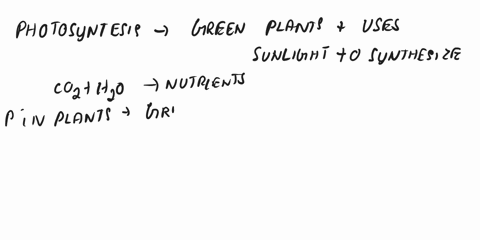 PHOTOSYNTESIS → GREEN PLANTS + USES
SUNLIGHT TO SYNTHESIZE
CO2 + H2O → NUTRIENTS
P IN PLANTS → GRI